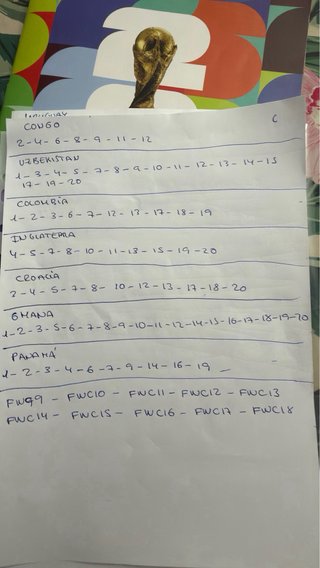 CONGO
6
2-4-6-8-9-11-12
UZBEKISTAN
1-3-4-5-7-8-9-10-11-12-13-14-15
17-19-20
COLOMBIA
1-2-3-6-7-12-13-17-18-19
INGLATERRA
4-5-7-8-10-11-13-15-19-20
CROACIA
2-4-5-7-8-10-12-13-17-18-20
GHANA
1-2-3-5-6-7-8-9-10-11-12-14-15-16-17-18-19-20
PANAMÁ
1-2-3-4-6-7-9-14-16-19-
FWC9 - FWC10 - FWC11 - FWC12 - FWC13
FWC14 - FWC15 - FWC16 - FWC17 - FWC18